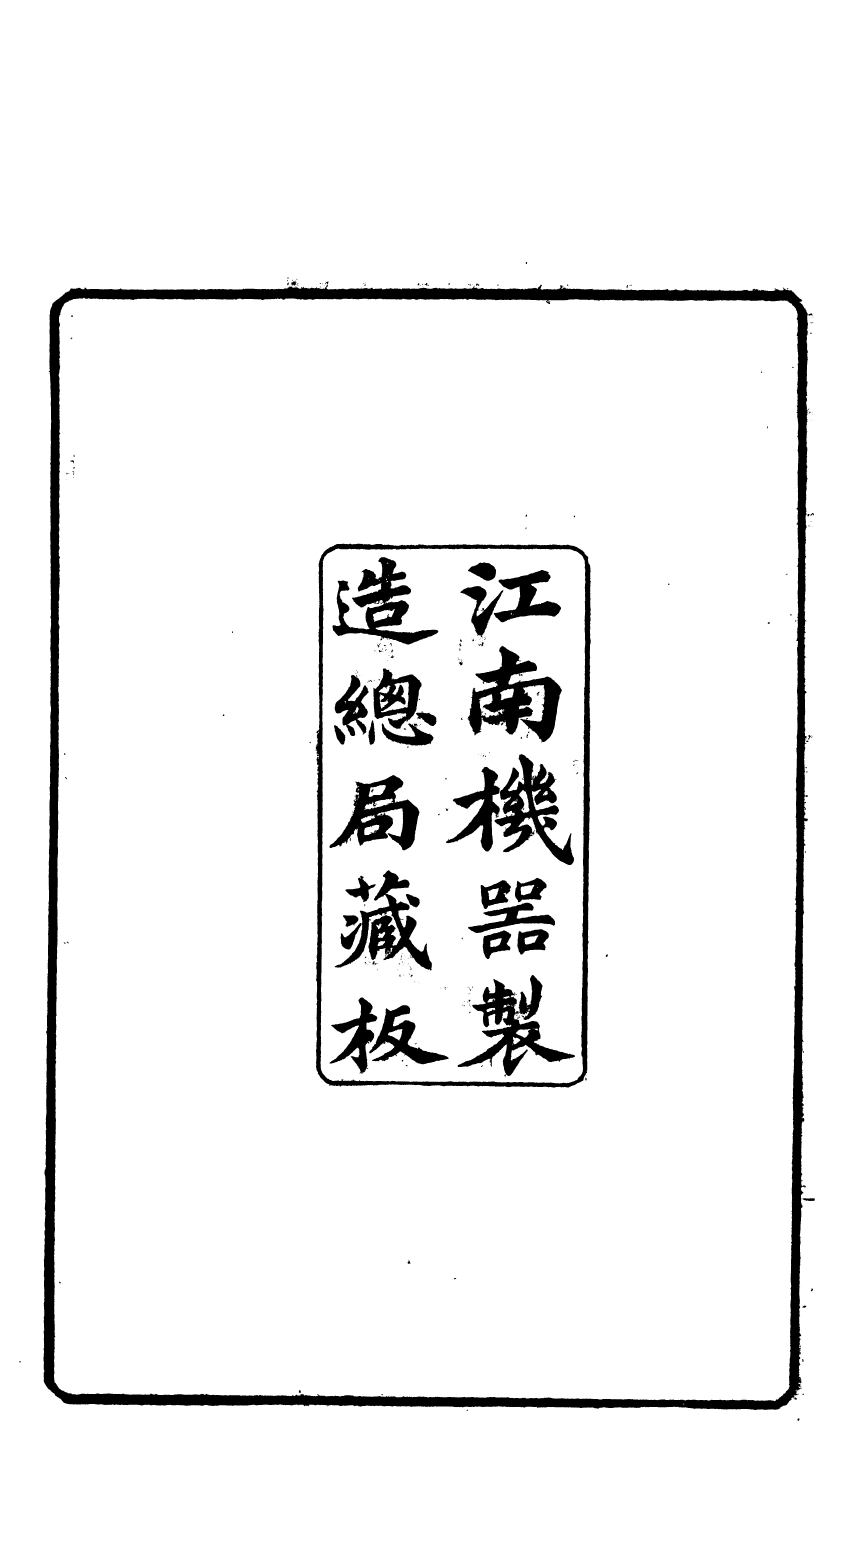 江南機器製
造總局藏板